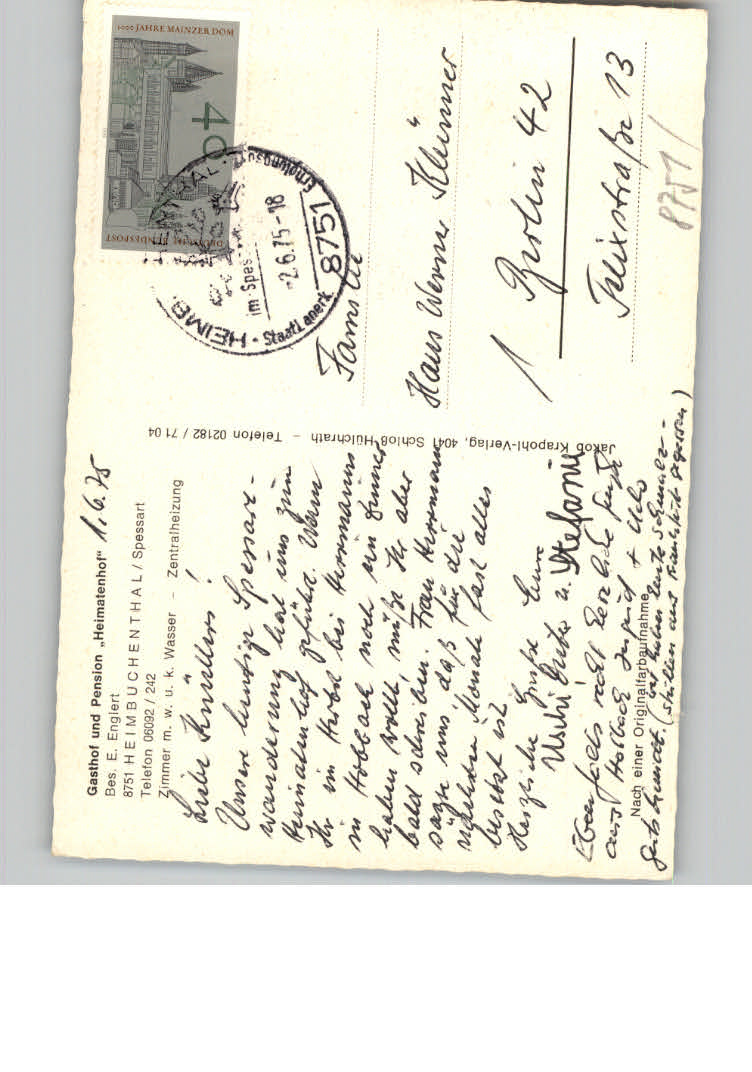 Gasthof und Pension „Heimatenhof"
Bes. E. Englert
8751 HEIMBUCHENTHAL/Spessart
Telefon 06092 / 242
Zimmer m. w. u. k. Wasser – Zentralheizung
1.6.75
Liebe Knüllers!
Unsere heutige Spessart-
wanderung hat uns zum
Heimatenhof geführt. Wenn
Ihr im Herbst bei Herrmanns
in Hobbach noch ein Zimmer
haben wollt, müßt Ihr aber
bald schreiben. Frau Herrmann
sagte uns, daß für die
nächsten Monate fast alles
besetzt ist.
Herzliche Grüße Eure
Uschi, u. Stefanie
Ebenfalls recht herzliche Grüße
aus Hobbach Ingrid + Udo
Gutschmidt. (wir haben heute Schmalz-
stullen aus Frankfurt gegessen)
Nach einer Originalfarbaufnahme
Jakob Krapohl-Verlag, 4041 Schloß Hülchrath – Telefon 02182 / 71 04
1000 JAHRE MAINZER DOM
40
DEUTSCHE BUNDESPOST
8751 HEIMBUCHENTHAL
im Spessart
-2.6.75-18
Staatl. anerk. Erholungsort
Familie
Hans Werner
1 Berlin 42
Felixstraße 13
8751/